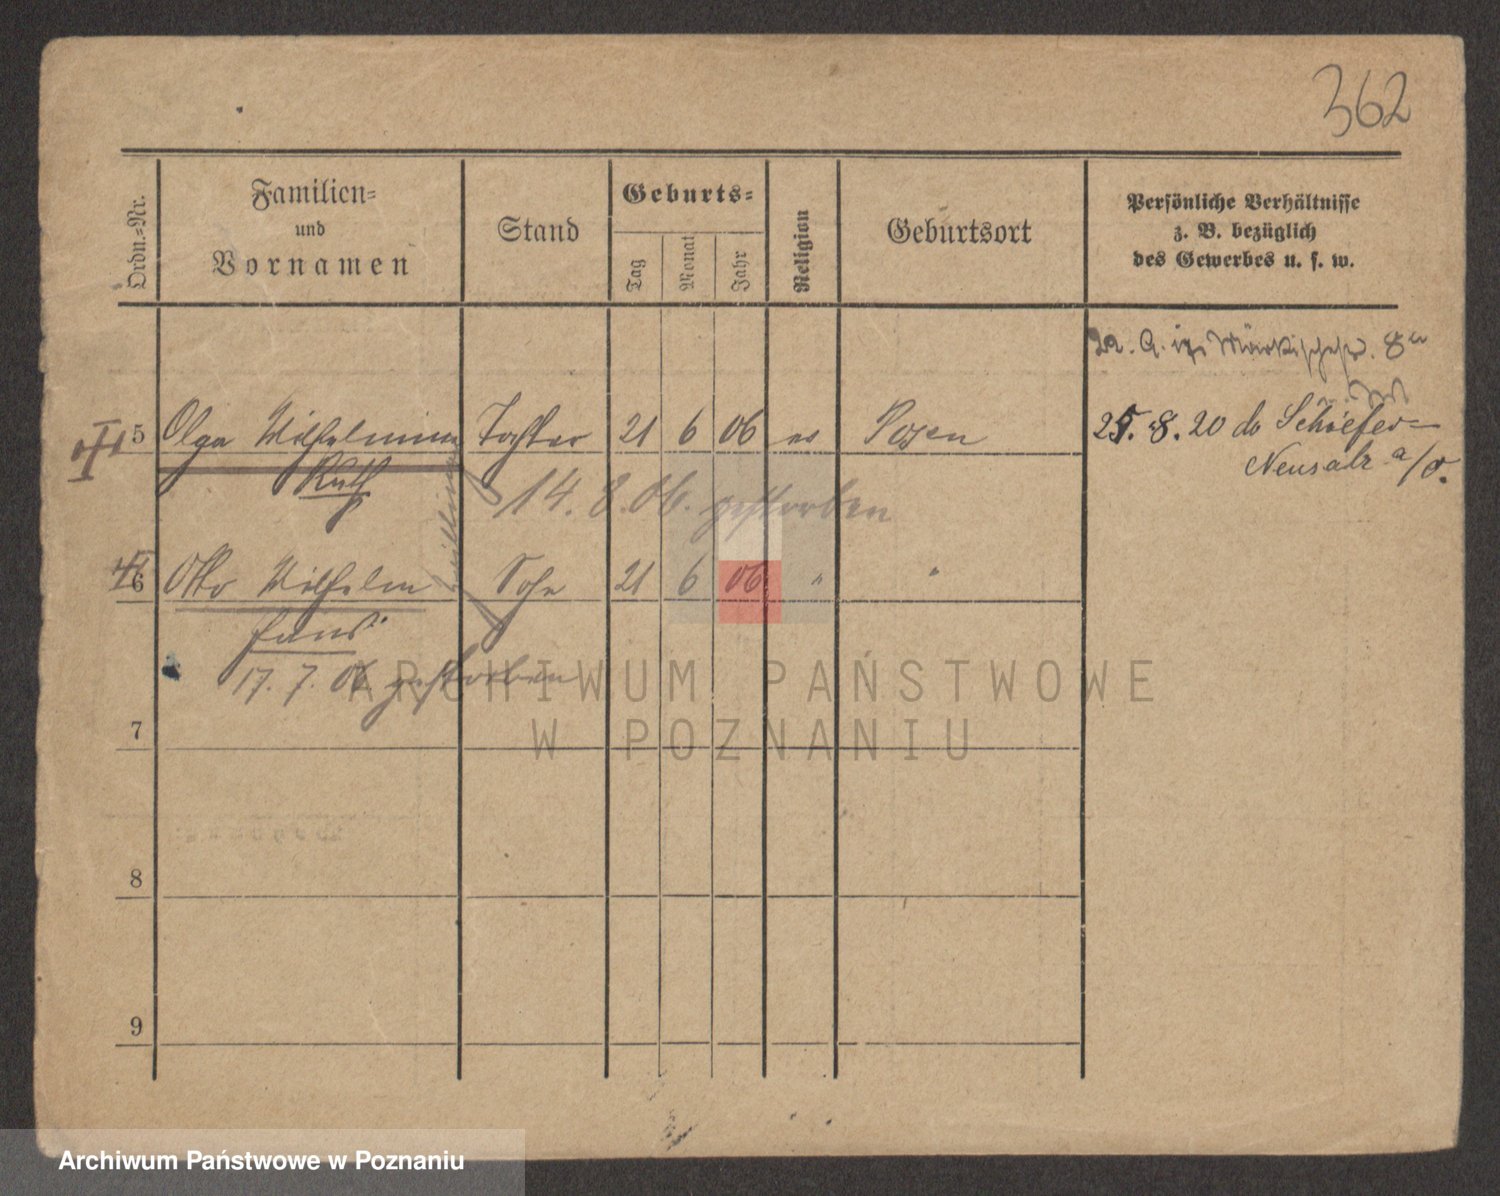 362
Ordn.-Nr.
Familien-
und
Vornamen
Stand
Geburts-
Tag
Monat
Jahr
Religion
Geburtsort
Persönliche Verhältnisse
z. B. bezüglich
des Gewerbes u. s. w.
Märkischestr. 8
5 Olga Wilhelmine Tochter 21 6 06 ev Posen
Ruth
25. 8. 20 do Schiefer
Neusalz a/O.
14. 8. 06. gestorben
Zwillinge
6 Otto Wilhelm Sohn 21 6 06 " "
Hans
17. 7. 06 gestorben
7
8
9
ARCHIWUM PAŃSTWOWE
W POZNANIU
Archiwum Państwowe w Poznaniu